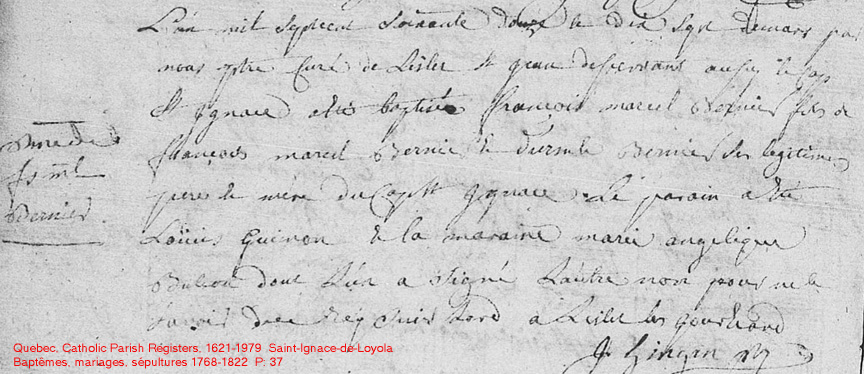 L'an mil Septcent Soixante douze le dix Sept de mars par
nous ptre Curé de Lislet St jean deservant aussy le Cap
St Ignace a été baptisé François marcel Bernier fils de
B me de
fs ml
Bernier
François marcel Bernie & de Bernier Ses legitimes
pere & mere du Cap St Ignace. Le parain a été
Loüis Guinon & la maraine marie angelique
dont L'un a Signé L'autre non pour ne le
Savoir Lord a Lislet les jour
Quebec, Catholic Parish Registers, 1621-1979 Saint-Ignace-de-Loyola
Baptêmes, mariages, sépultures 1768-1822 P: 37